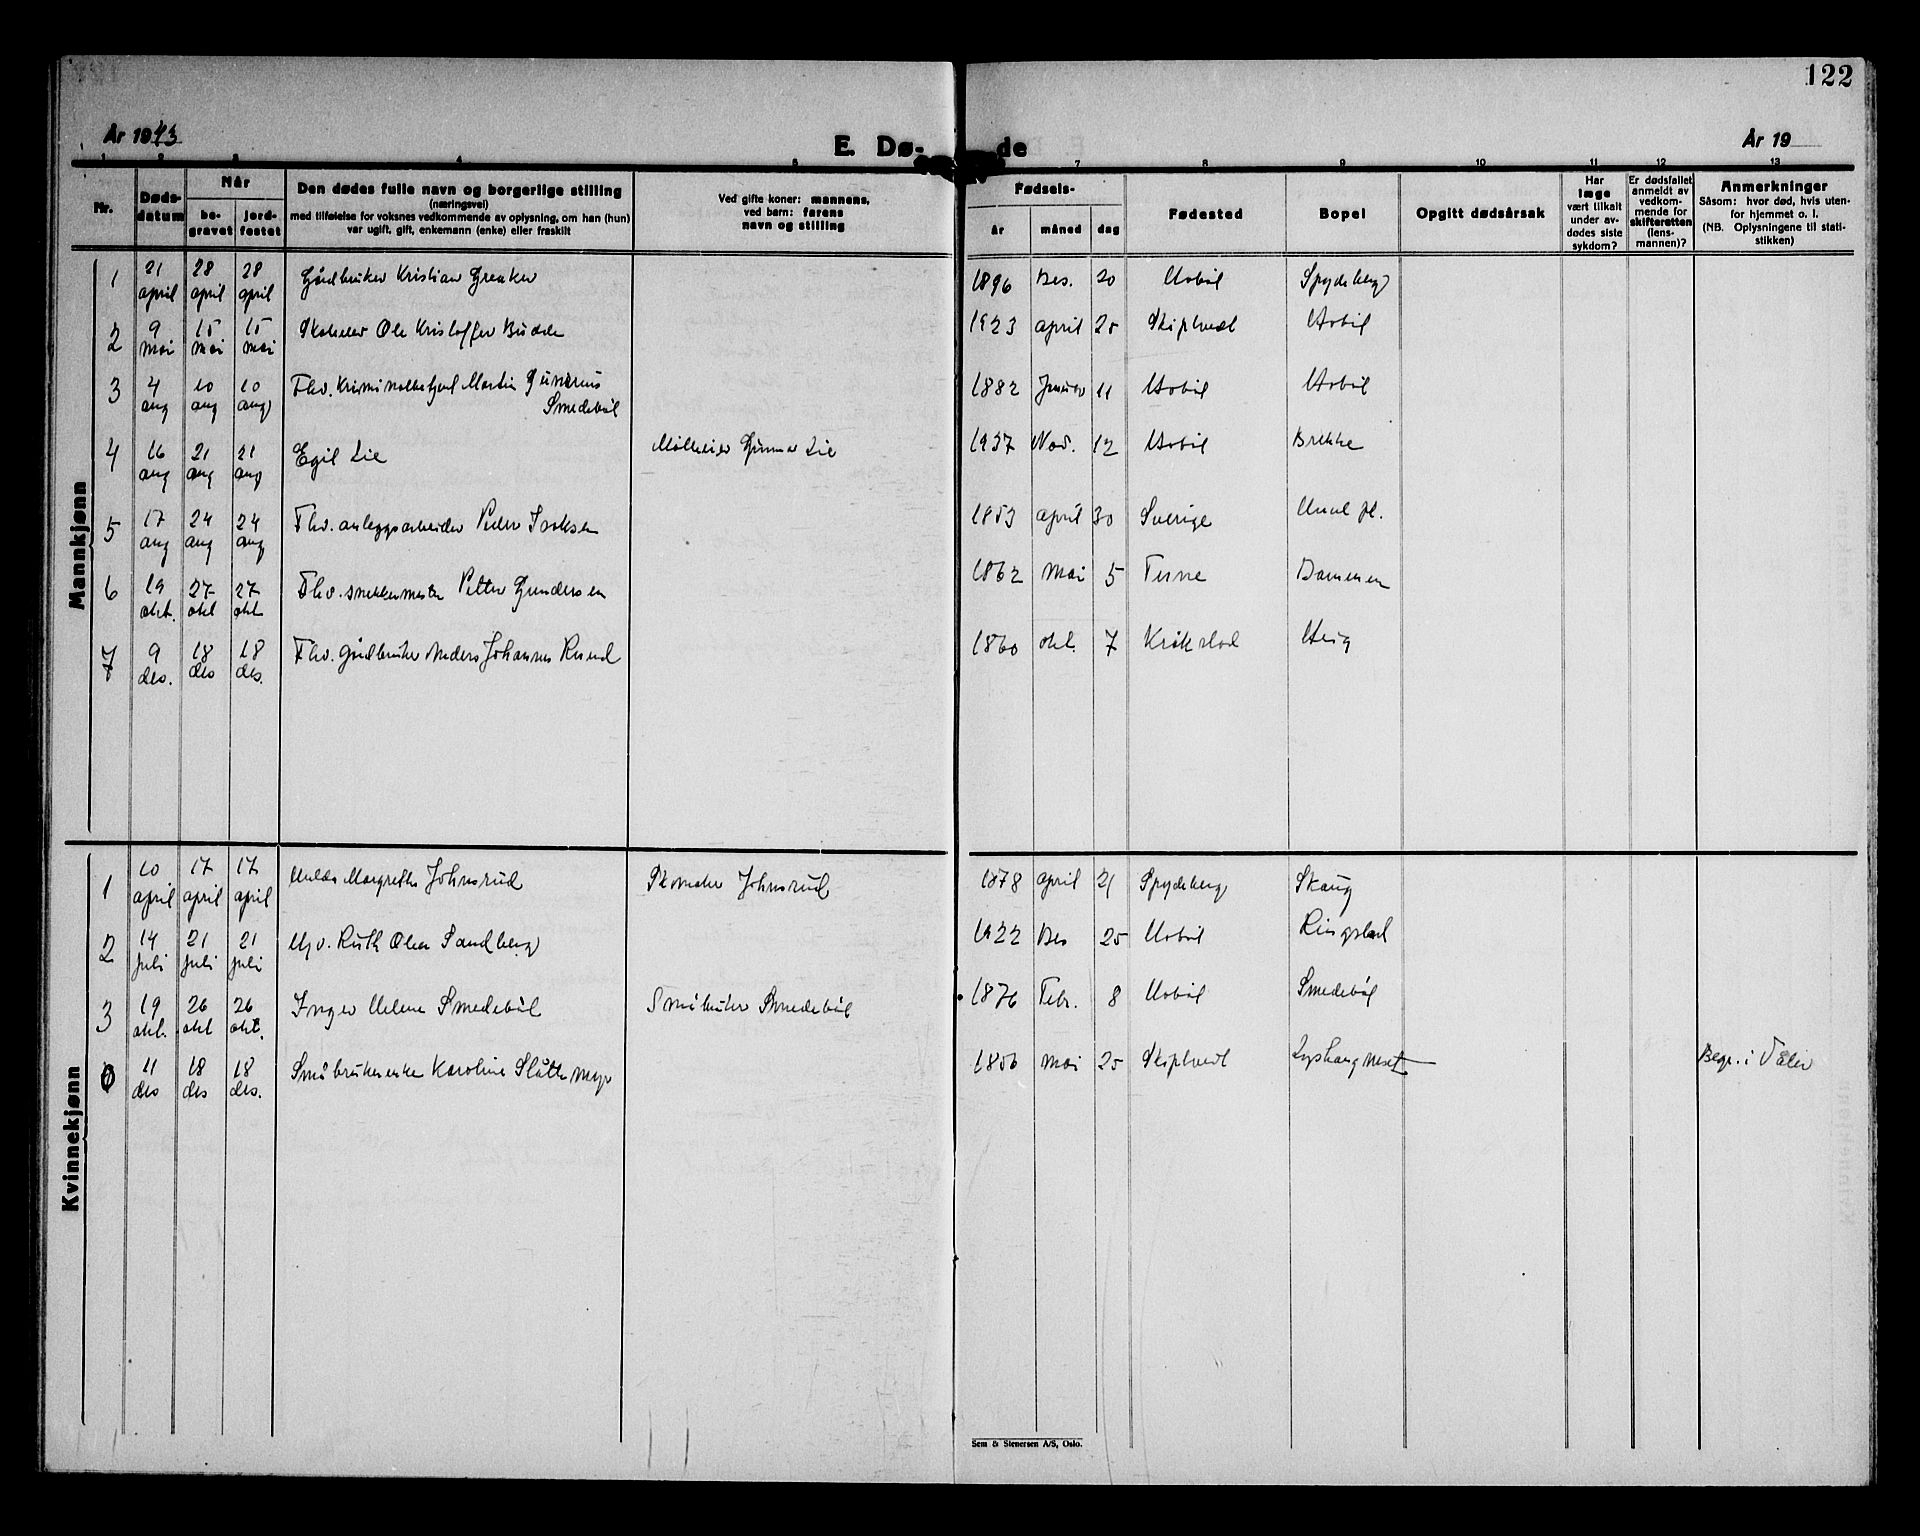 122
År 1943
E. Dø-
de
År 19
1 2 3 4 5 7 8 9 10 11 12 13
Nr.
Døds-
datum
Når
be-
gravet
jord-
festet
Den dødes fulle navn og borgerlige stilling
(næringsvei)
med tilføielse for voksnes vedkommende av oplysning, om han (hun)
var ugift, gift, enkemann (enke) eller fraskilt
Ved gifte koner: mannens,
ved barn: farens
navn og stilling
Fødsels-
år måned dag
Fødested
Bopel
Opgitt dødsårsak
Har
læge
vært tilkalt
under av-
dødes siste
sykdom?
Er dødsfallet
anmeldt av
vedkom-
mende for
skifteretten
(lens-
mannen)?
Anmerkninger
Såsom: hvor død, hvis uten-
for hjemmet o. l.
(NB. Oplysningene til stati-
stikken)
Mannkjønn
1 21 april 28 april 28 april Gårdbruker Kristian Greaker 1896 Des. 20 Hobøl Spydeberg
2 9 mai 15 mai 15 mai Skoleelev Ole Kristoffer Budde 1923 april 25 Skiptvedt Hobøl
3 4 aug 10 aug 10 aug Fhv. Kriminalbetjent Martin Gunerius
Smedebøl 1882 Januar 11 Hobøl Hobøl
4 16 aug 21 aug 21 aug Egil Lie Mølleeier Gunnar Lie 1937 Nov. 12 Hobøl Brekke
5 17 aug 24 aug 24 aug Fhv. anleggsarbeider Peder Isaksen 1853 april 30 Sverige pl.
6 19 okt. 27 okt 27 okt Fhv. snekkermester Petter Gundersen 1862 mai 5 Dammen
7 9 des. 18 des 18 des. Fhv. gårdbruker Anders Johannes Ruud 1860 okt. 7 Kråkstad
Kvinnekjønn
1 10 april 17 april 17 april Hulda Margrethe Johnsrud Skomaker Johnsrud 1878 april 21 Spydeberg Skaug
2 14 juli 21 juli 21 juli Ugv. Ruth Olea Sandberg 1922 Des 25 Hobøl Ringstad
3 19 okt. 26 okt 26 okt. Inger Helene Smedebøl Småbruker Smedebøl 1876 Febr. 8 Hobøl Smedebøl
0 11 des 18 des 18 des. Småbrukerenke Karoline Slåttemyr 1856 mai 25 Skiptvedt Begr. i Våler
Sem & Stenersen A/S, Oslo.